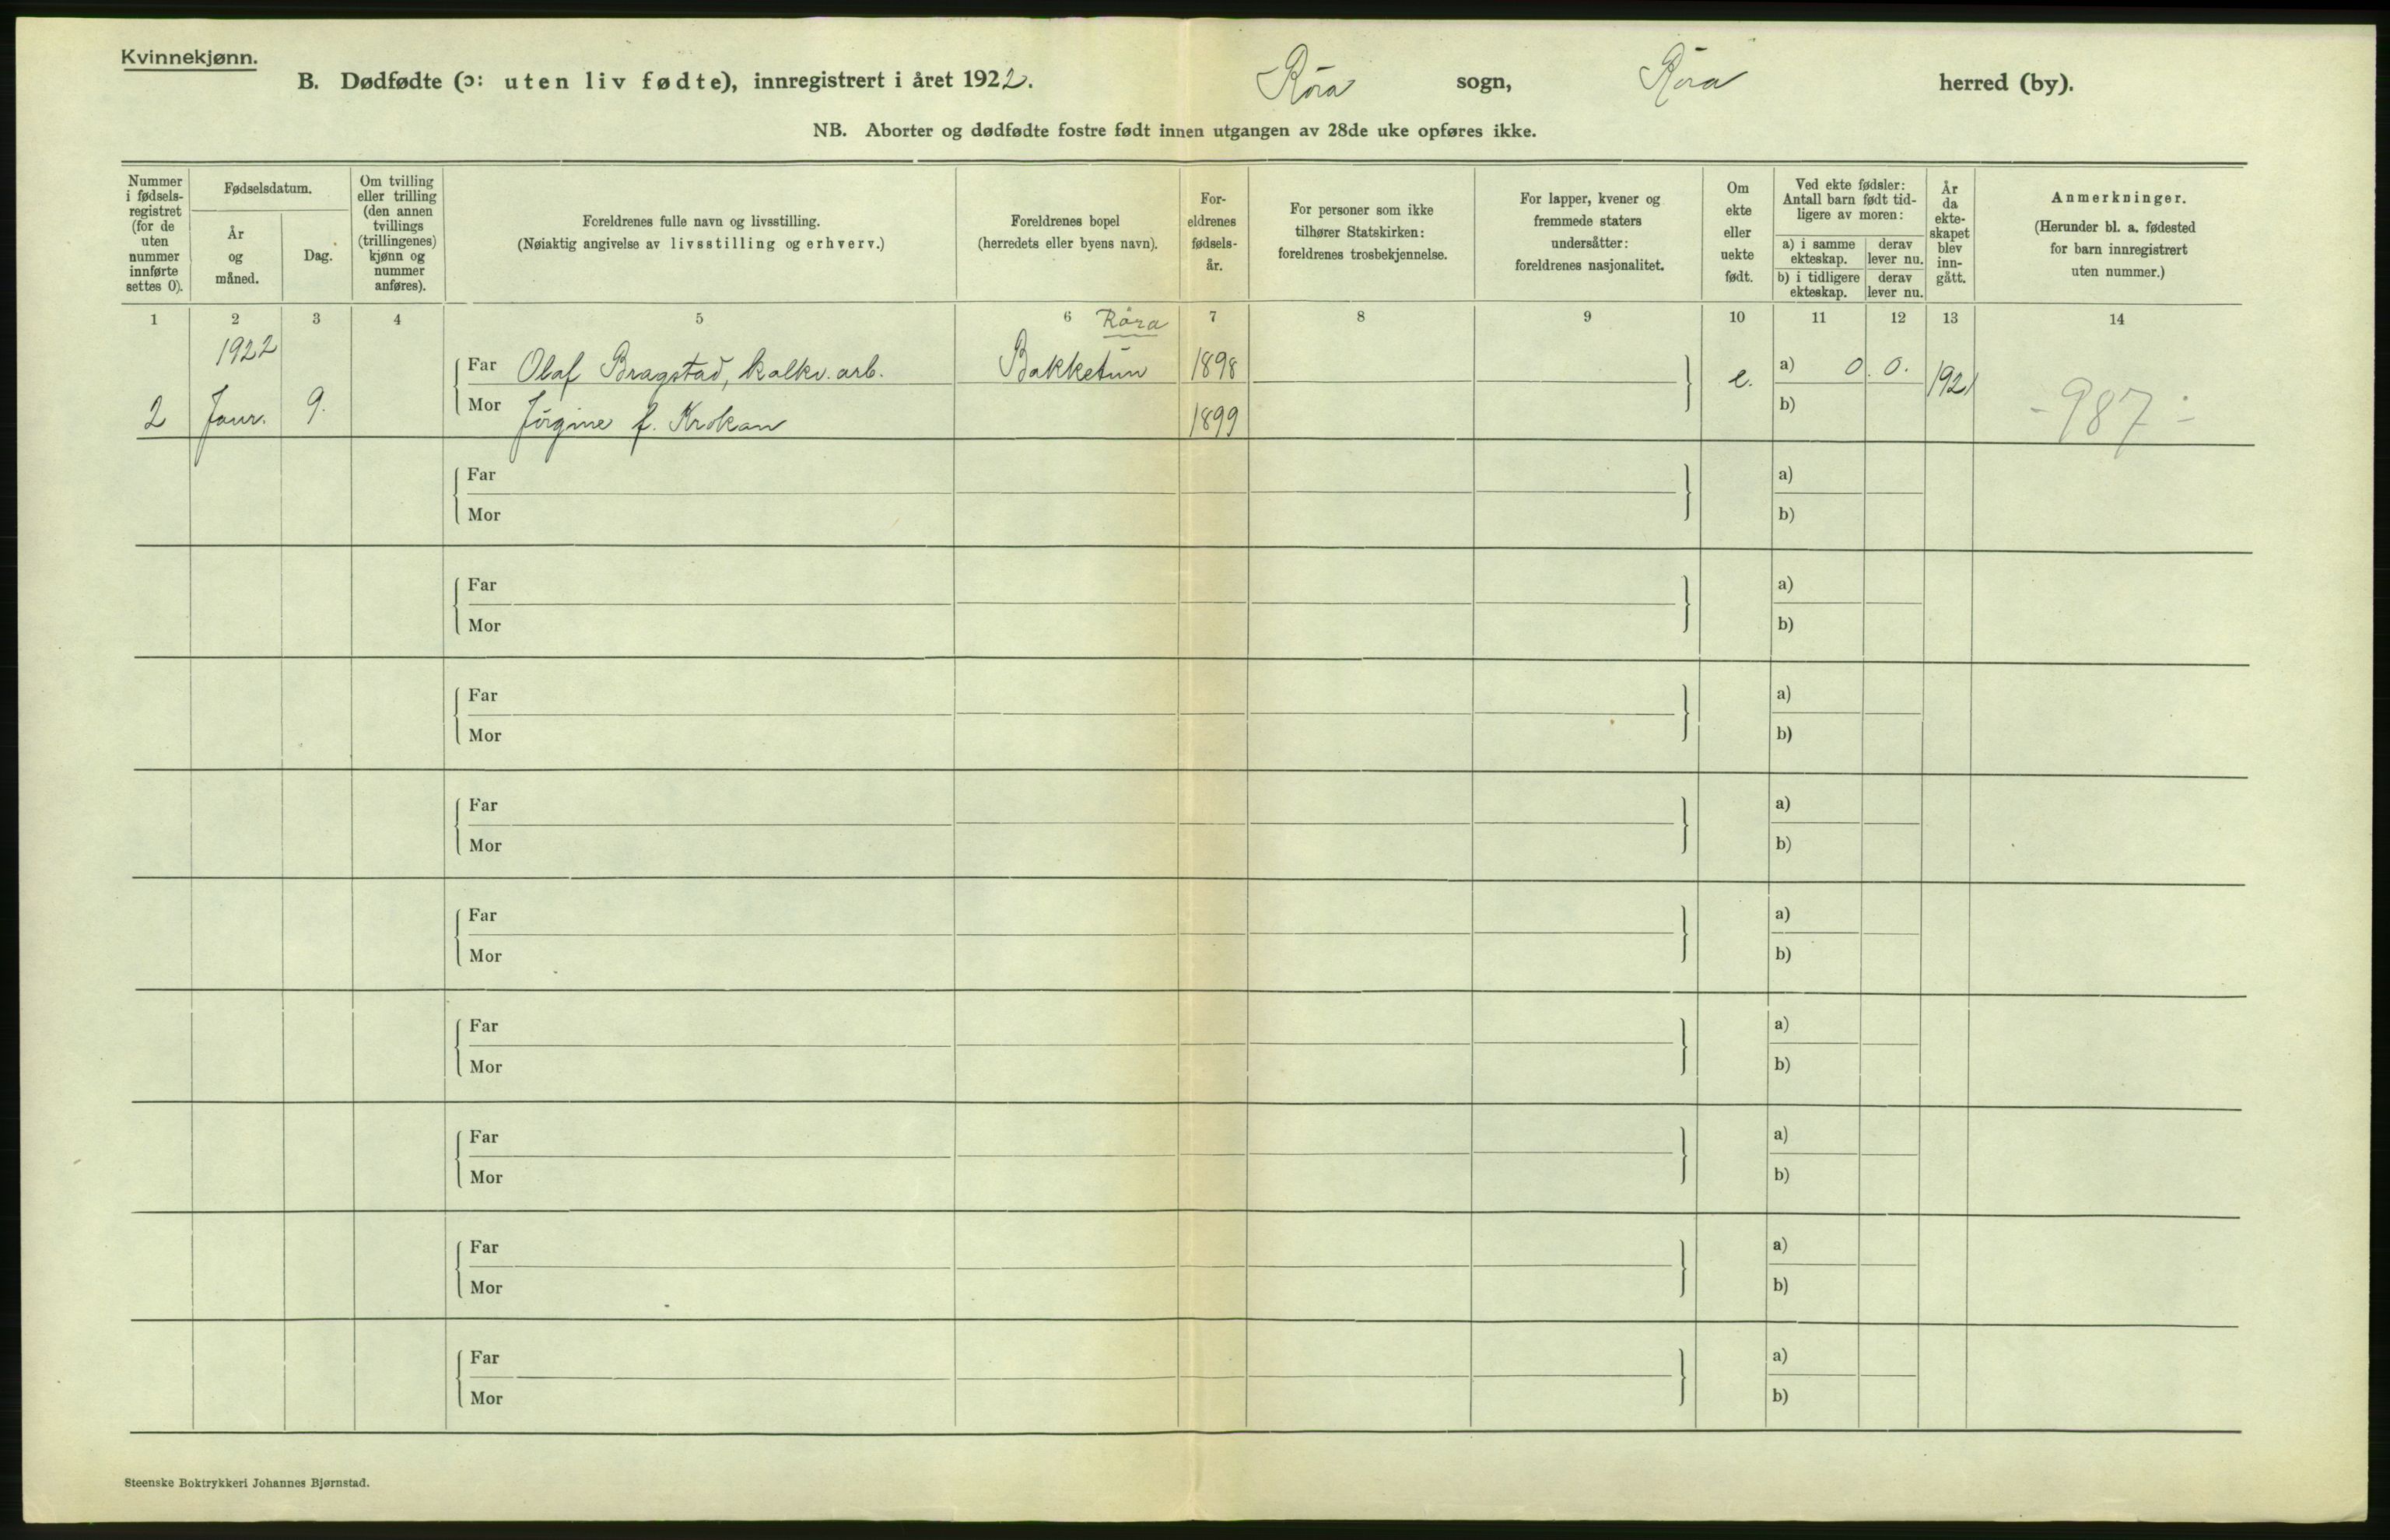 Kvinnekjønn.
B. Dødfødte (ɔ: uten liv fødte), innregistrert i året 1922. Röra sogn, Röra herred (by).
NB. Aborter og dødfødte fostre født innen utgangen av 28de uke opføres ikke.
Nummer i fødsels-registret (for de uten nummer innførte settes 0).
Fødselsdatum.
År og måned.
Dag.
Om tvilling eller trilling (den annen tvillings (trillingenes) kjønn og nummer anføres).
Foreldrenes fulle navn og livsstilling.
(Nøiaktig angivelse av livsstilling og erhverv.)
Foreldrenes bopel
(herredets eller byens navn).
For-eldrenes fødsels-år.
For personer som ikke tilhører Statskirken: foreldrenes trosbekjennelse.
For lapper, kvener og fremmede staters undersåtter: foreldrenes nasjonalitet.
Om ekte eller uekte født.
Ved ekte fødsler: Antall barn født tid-ligere av moren:
a) i samme ekteskap. derav lever nu.
b) i tidligere ekteskap. derav lever nu.
År da ekte-skapet blev inn-gått.
Anmerkninger.
(Herunder bl. a. fødested for barn innregistrert uten nummer.)
1 2 3 4 5 6 7 8 9 10 11 12 13 14
Röra
1922
Far Olaf Bragstad, kalkv. arb. Bakketun 1898 e. a) 0. 0. 1921
2 Janr. 9. Mor Jörgine f. Krokan 1899 b) - 987 -
Far a)
Mor b)
Far a)
Mor b)
Far a)
Mor b)
Far a)
Mor b)
Far a)
Mor b)
Far a)
Mor b)
Far a)
Mor b)
Far a)
Mor b)
Far a)
Mor b)
Steenske Boktrykkeri Johannes Bjørnstad.